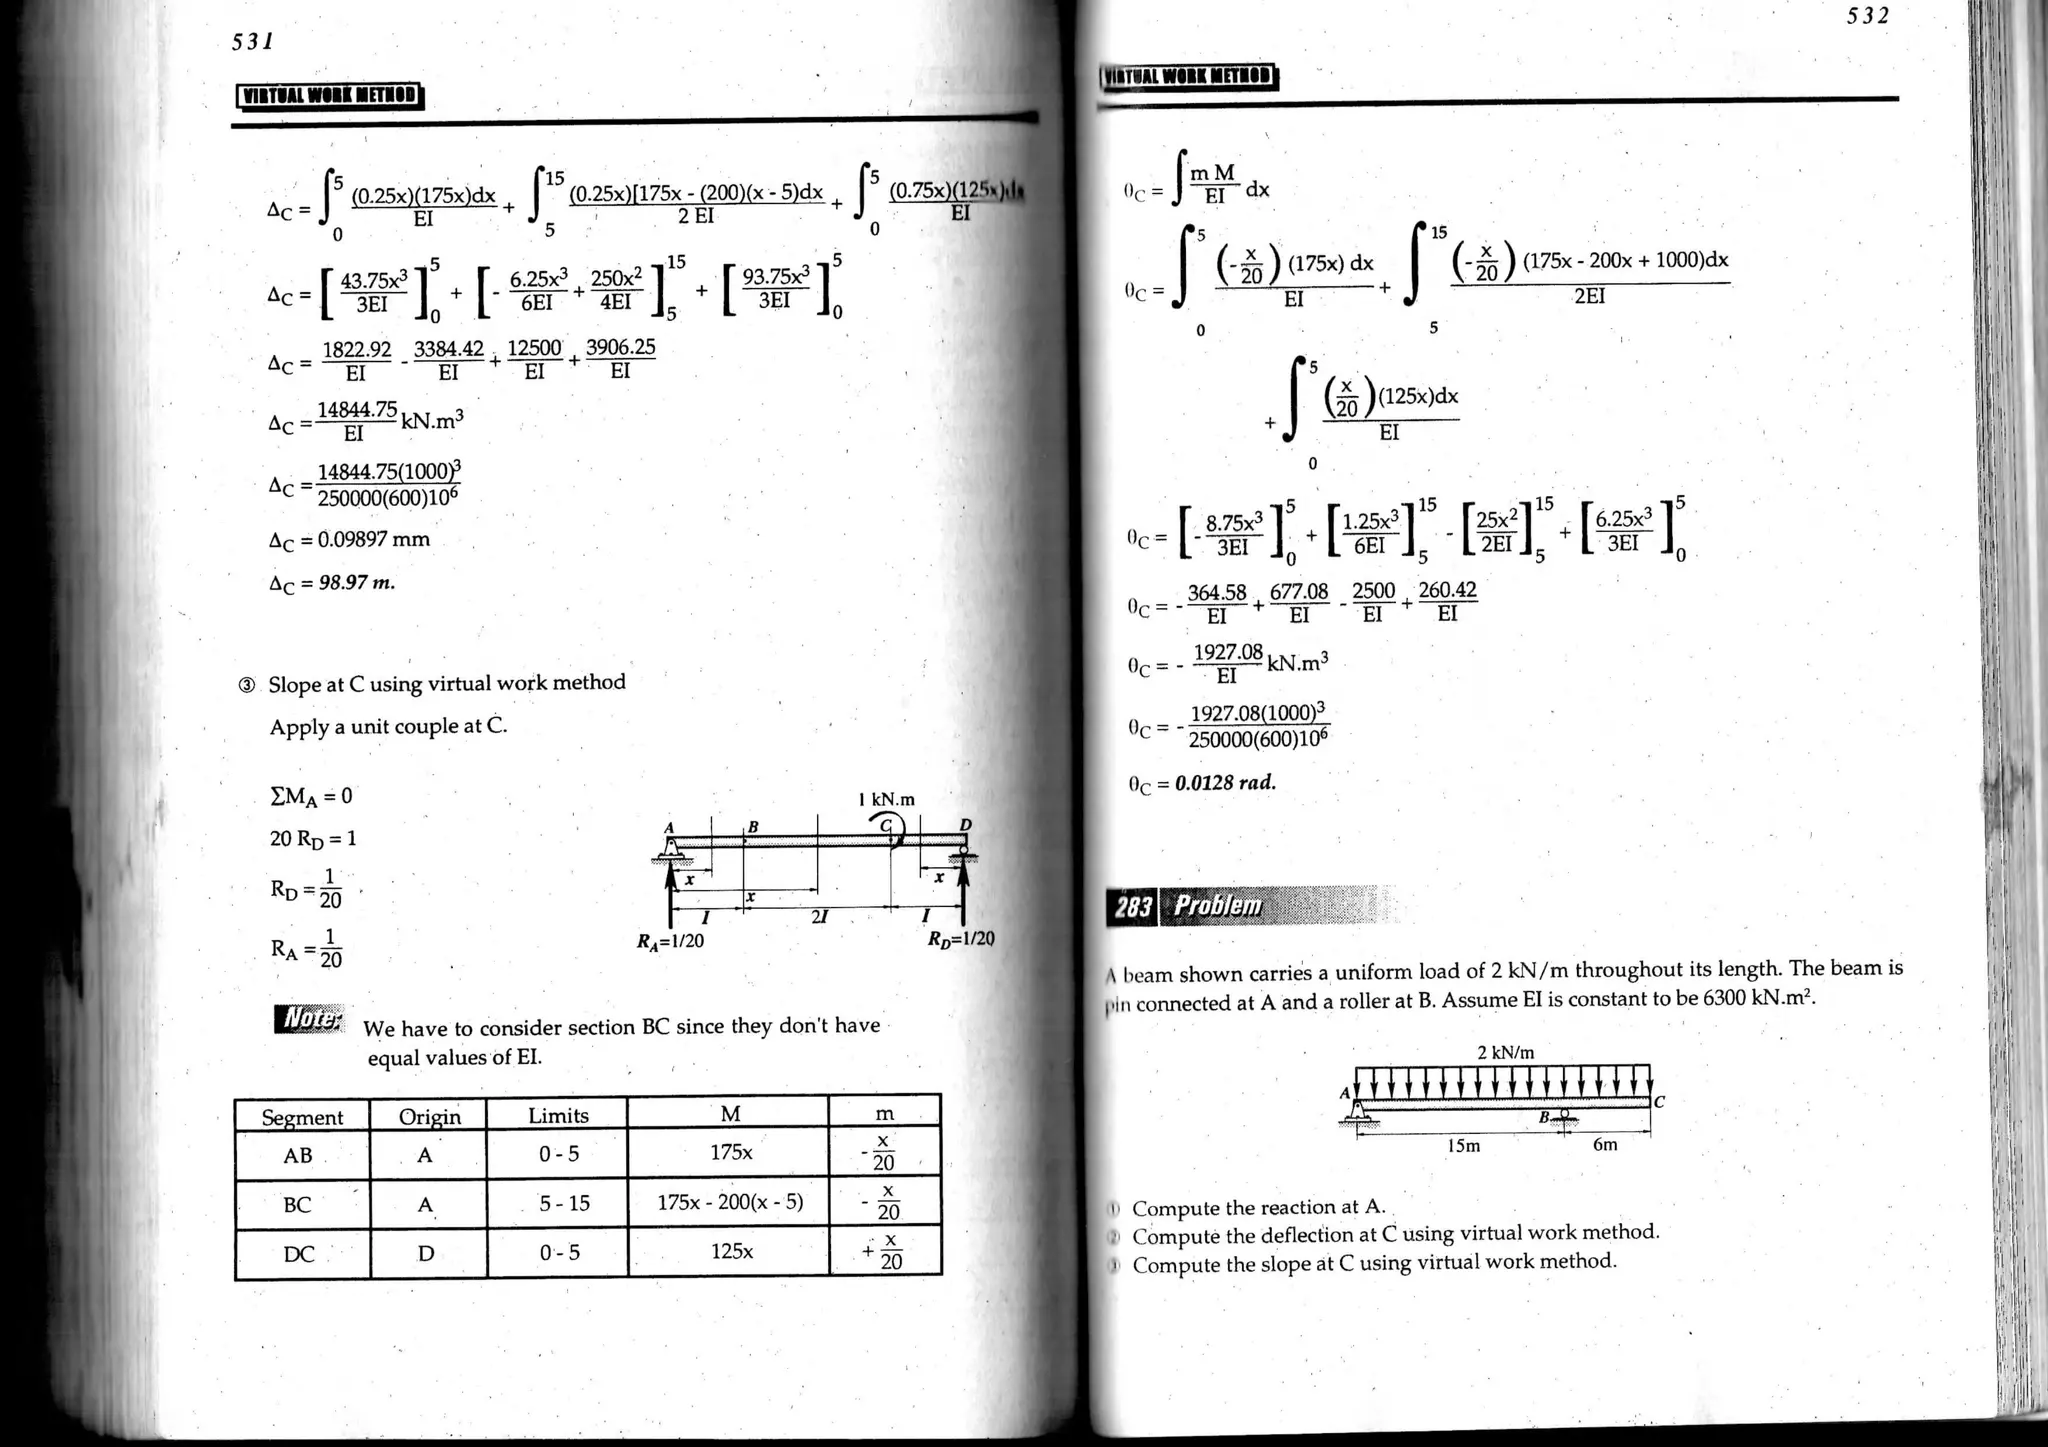 531
VIRTUAL WORK METHOD
ΔC = ∫₀⁵ (0.25x)(175x)dx / EI + ∫₅¹⁵ (0.25x)[175x - (200)(x - 5)dx / 2 EI + ∫₀⁵ (0.75x)(125x)dx / EI
ΔC = [ 43.75x³ / 3EI ]₀⁵ + [ - 6.25x³ / 6EI + 250x² / 4EI ]₅¹⁵ + [ 93.75x³ / 3EI ]₀⁵
ΔC = 1822.92 / EI - 3384.42 / EI + 12500 / EI + 3906.25 / EI
ΔC = 14844.75 / EI kN.m³
ΔC = 14844.75(1000)³ / 250000(600)10⁶
ΔC = 0.09897 mm
ΔC = 98.97 m.
③ Slope at C using virtual work method
Apply a unit couple at C.
ΣMA = 0
20 RD = 1
RD = 1/20
RA = 1/20
1 kN.m
A B C D
x x x
I 2I I
RA=1/20 RD=1/20
Note: We have to consider section BC since they don't have
equal values of EI.
Segment Origin Limits M m
AB A 0 - 5 175x - x/20
BC A 5 - 15 175x - 200(x - 5) - x/20
DC D 0 - 5 125x + x/20
532
VIRTUAL WORK METHOD
θC = ∫ m M / EI dx
θC = ∫₀⁵ (- x/20) (175x) dx / EI + ∫₅¹⁵ (- x/20) (175x - 200x + 1000)dx / 2EI
+ ∫₀⁵ (x/20)(125x)dx / EI
θC = [ - 8.75x³ / 3EI ]₀⁵ + [ 1.25x³ / 6EI ]₅¹⁵ - [ 25x² / 2EI ]₅¹⁵ + [ 6.25x³ / 3EI ]₀⁵
θC = - 364.58 / EI + 677.08 / EI - 2500 / EI + 260.42 / EI
θC = - 1927.08 / EI kN.m³
θC = - 1927.08(1000)³ / 250000(600)10⁶
θC = 0.0128 rad.
283 Problem
A beam shown carries a uniform load of 2 kN/m throughout its length. The beam is
pin connected at A and a roller at B. Assume EI is constant to be 6300 kN.m².
2 kN/m
A
C
B
15m 6m
① Compute the reaction at A.
② Compute the deflection at C using virtual work method.
③ Compute the slope at C using virtual work method.